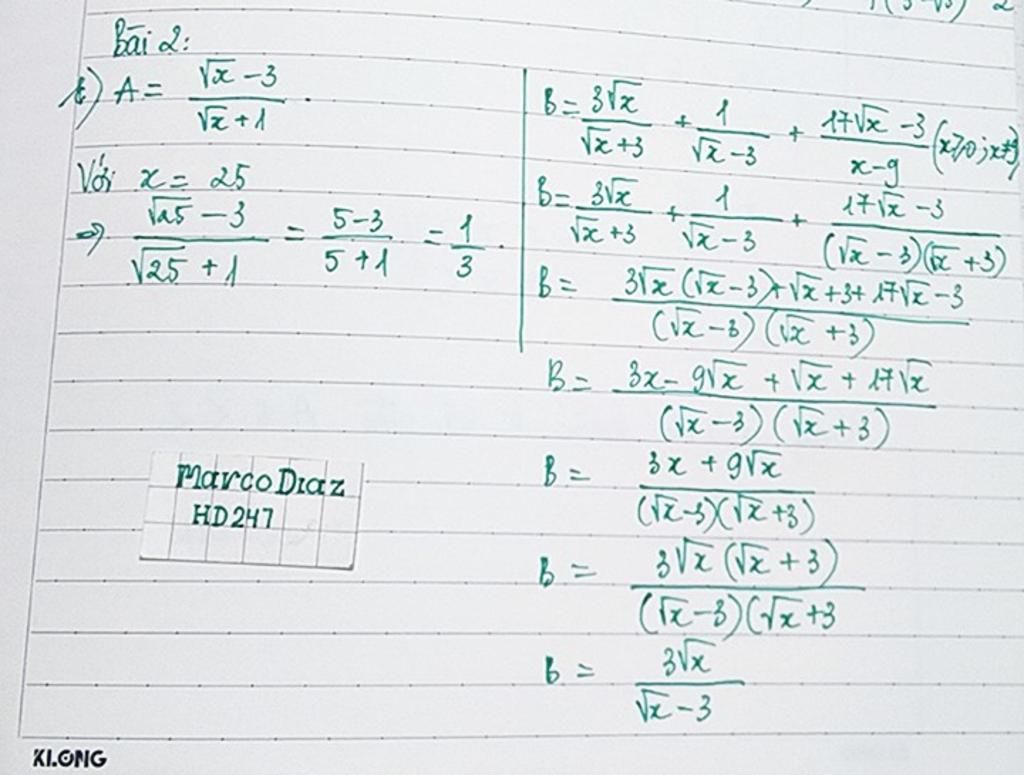 Bài 2:
1) A = (√x - 3)/(√x + 1) .
Với x = 25
⇒ (√25 - 3)/(√25 + 1) = (5 - 3)/(5 + 1) = 1/3 .
B = 3√x/(√x + 3) + 1/(√x - 3) + (17√x - 3)/(x - 9) (x ≥ 0 ; x ≠ 9)
B = 3√x/(√x + 3) + 1/(√x - 3) + (17√x - 3)/((√x - 3)(√x + 3))
B = (3√x (√x - 3) + √x + 3 + 17√x - 3)/((√x - 3)(√x + 3))
B = (3x - 9√x + √x + 17√x)/((√x - 3)(√x + 3))
B = (3x + 9√x)/((√x - 3)(√x + 3))
B = (3√x (√x + 3))/((√x - 3)(√x + 3)
B = 3√x/(√x - 3)
Marco Diaz
HD247
KLONG